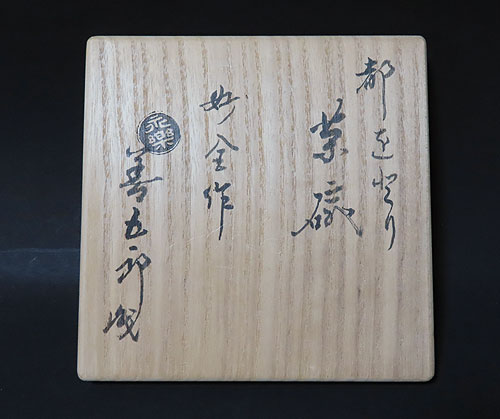 都をどり
茶碗
妙全作
永樂
善五郎識